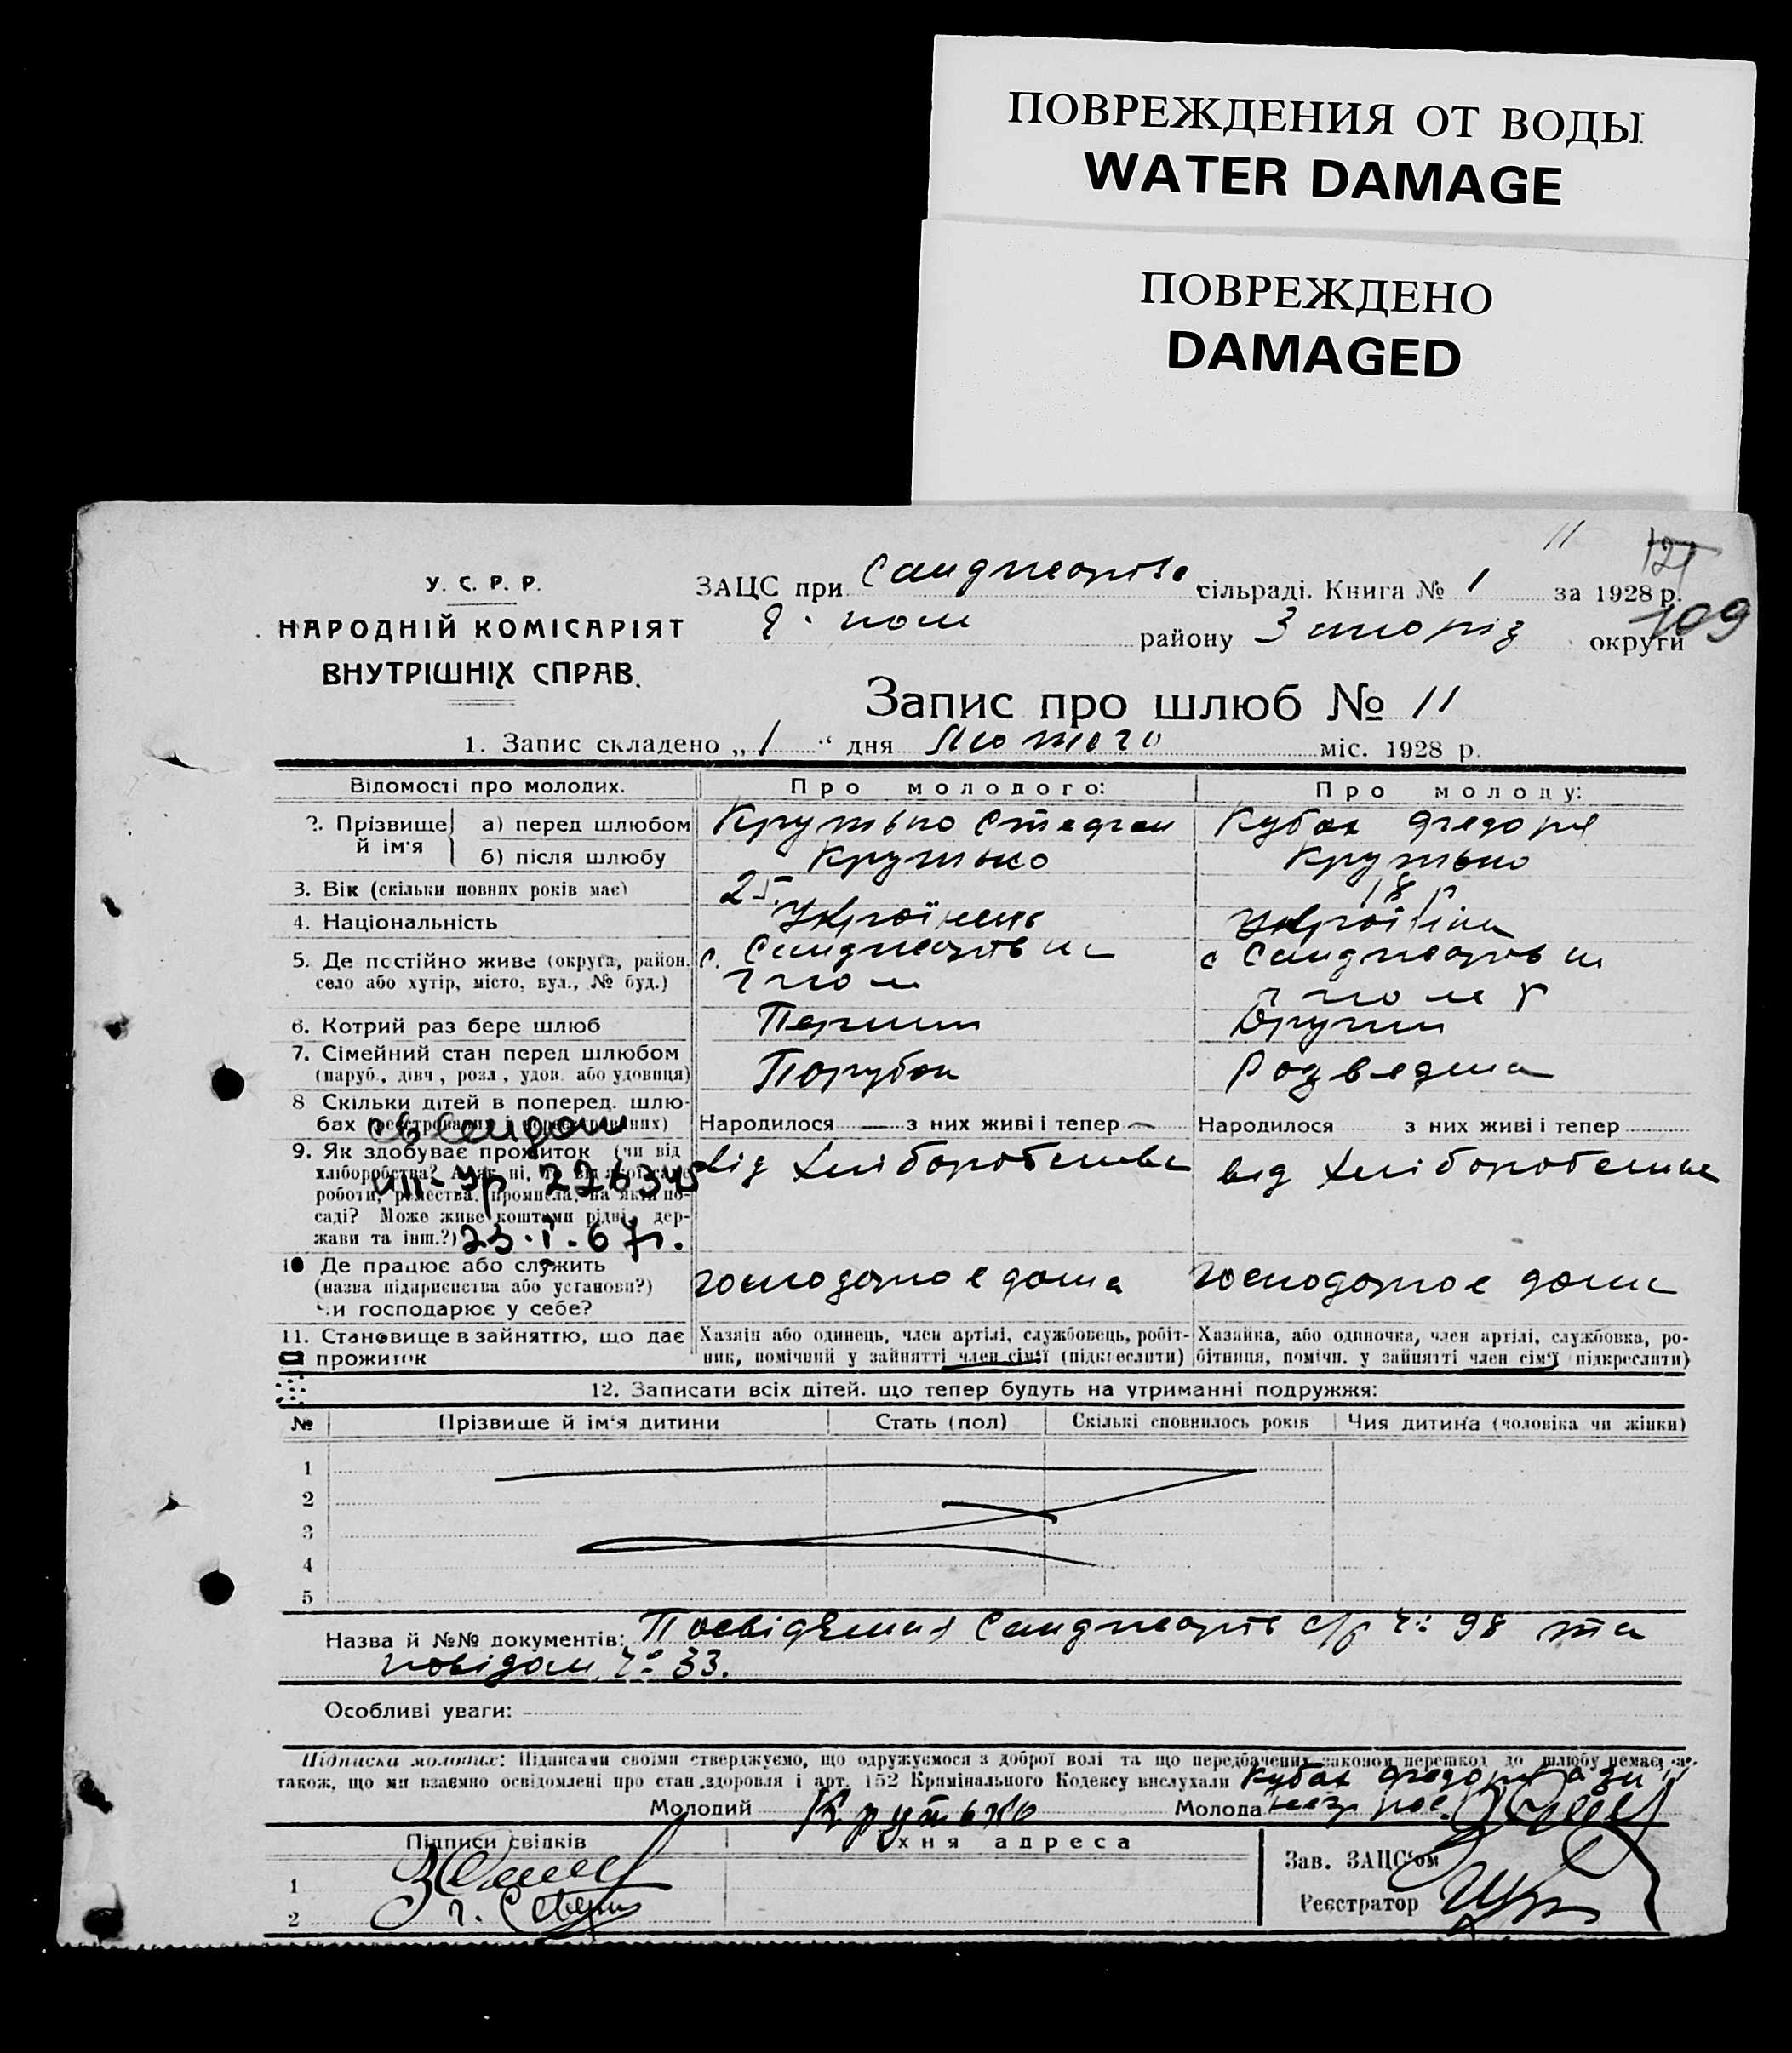 ПОВРЕЖДЕНИЯ ОТ ВОДЫ
WATER DAMAGE
ПОВРЕЖДЕНО
DAMAGED
11 121
109
У. С. Р. Р.
НАРОДНІЙ КОМІСАРІЯТ
ВНУТРІШНІХ СПРАВ.
ЗАЦС при сільраді. Книга № 1 за 1928 р.
району округи
Запис про шлюб № 11
1. Запис складено „ 1 “ дня Лютого міс. 1928 р.
Відомості про молодих. Про молодого: Про молоду:
2. Прізвище й ім'я а) перед шлюбом Крутько Стефан Кубах Федора
б) після шлюбу Крутько Крутько
3. Вік (скільки повних років має) 25 18 р
4. Національність Українець Українка
5. Де постійно живе (округа, район, село або хутір, місто, вул., № буд.) с. с
6. Котрий раз бере шлюб Перший Другий
7. Сімейний стан перед шлюбом Парубок Розведена
(паруб., дівч, розл, удов. або удовиця)
8 Скільки дітей в поперед. шлюбах Народилося — з них живі і тепер — Народилося з них живі і тепер
9. Як здобуває прожиток (чи від хліборобства? від хліборобства від хліборобства
роботи, ремества, промисла, на якій посаді? Може живе коштами рідні, держави та інш.?)
226345
23.I.67г.
10 Де працює або служить
(назва підприємства або установи?) господарює дома господарює дома
чи господарює у себе?
11. Становище в зайняттю, що дає прожиток
Хазяїн або одинець, член артілі, службовець, робітник, помічний у зайнятті член сім'ї (підкреслити)
Хазяйка, або одиночка, член артілі, службовка, робітниця, помічн. у зайнятті член сім'ї підкреслити)
12. Записати всіх дітей. що тепер будуть на утриманні подружжя:
№ Прізвище й ім'я дитини Стать (пол) Скількі сповнилось років Чия дитина (чоловіка чи жінки)
1
2
3
4
5
Назва й №№ документів: с/р 98 та
33.
Особливі уваги:
Підписка молодих: Підписами своїми стверджуємо, що одружуємося з доброї волі та що передбачених законом перешкод до шлюбу немає, а
також, що ми взаємно освідомлені про стан здоровля і арт. 152 Кримінального Кодексу вислухали Кубах Федора
Молодий Крутько Молода
Підписи свідків Їхня адреса
1
2
Зав. ЗАЦС'ом
Реєстратор